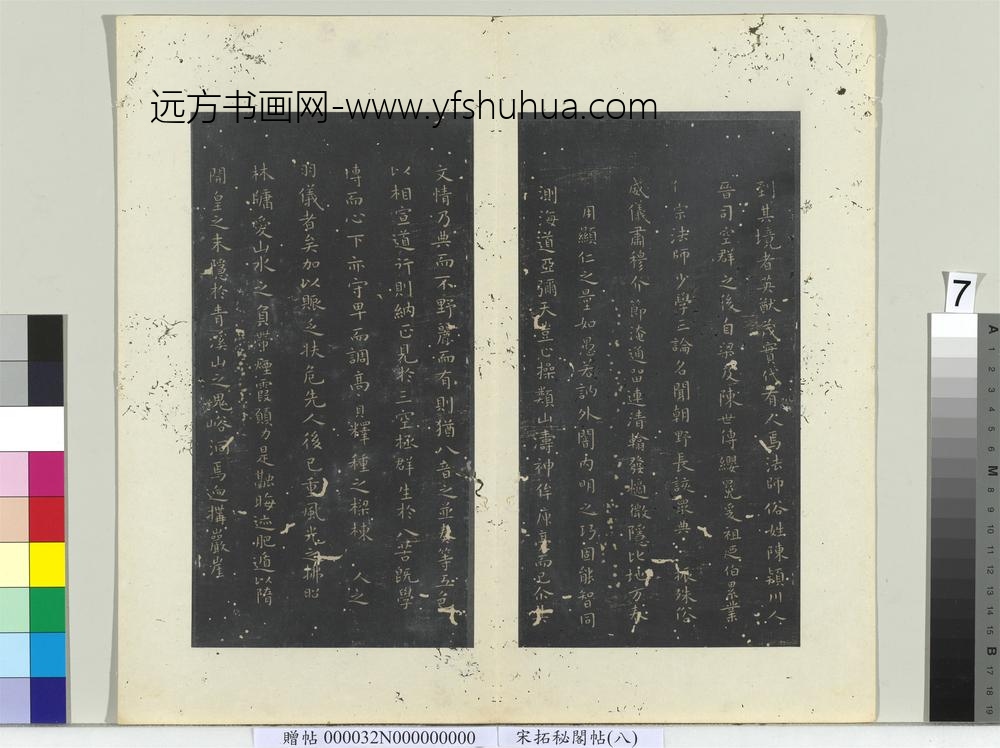 远方书画网-www.yfshuhua.com
到其境者英猷茂實代有人焉法師俗姓陳潁川人
晉司空群之後自梁及陳世傳纓冕爰祖延伯累業
宗法師少學三論名聞朝野長該眾典 振殊俗
威儀肅穆介節淹通留連清翰發擿微隱比地方春
用顯仁之量如愚若訥外闇內明之巧固能智同
測海道亞彌天豈止操類山濤神侔庾亮而已介其
文情乃典而不野麗而有則猶八音之並奏等五色
以相宣道行則納正見於三空拯群生於八苦既學
博而心下亦守卑而調高 釋種之樑棟 人之
羽儀者矣加以賑乏扶危先人後己重風光之拂照
林牖愛山水之負帶煙霞願力是融晦迹肥遁以隋
開皇之末隱於青溪山之鬼峪洞焉迴構巖崖
7
贈帖 000032N000000000
宋拓秘閣帖(八)
A 1 2 3 4 5 6 M 8 9 10 11 12 13 14 15 B 17 18 19